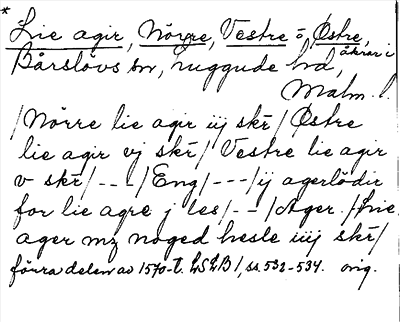 * Lie agir, Nörre, Vestre o, Østre,
åkrar i
Bårslövs sn, Luggude hd,
Malm. l.
/Nörre lie agir iij skr/ Østre
lie agir vj skr/ Vestre lie agir
v skr/---/Eng/---/ij agerlödir
for lie agre j les/--/Ager./Lie
ager mz noged hesle iiij skr/
förra delen av 1570-t. LSLB 1, ss. 532-534. orig.